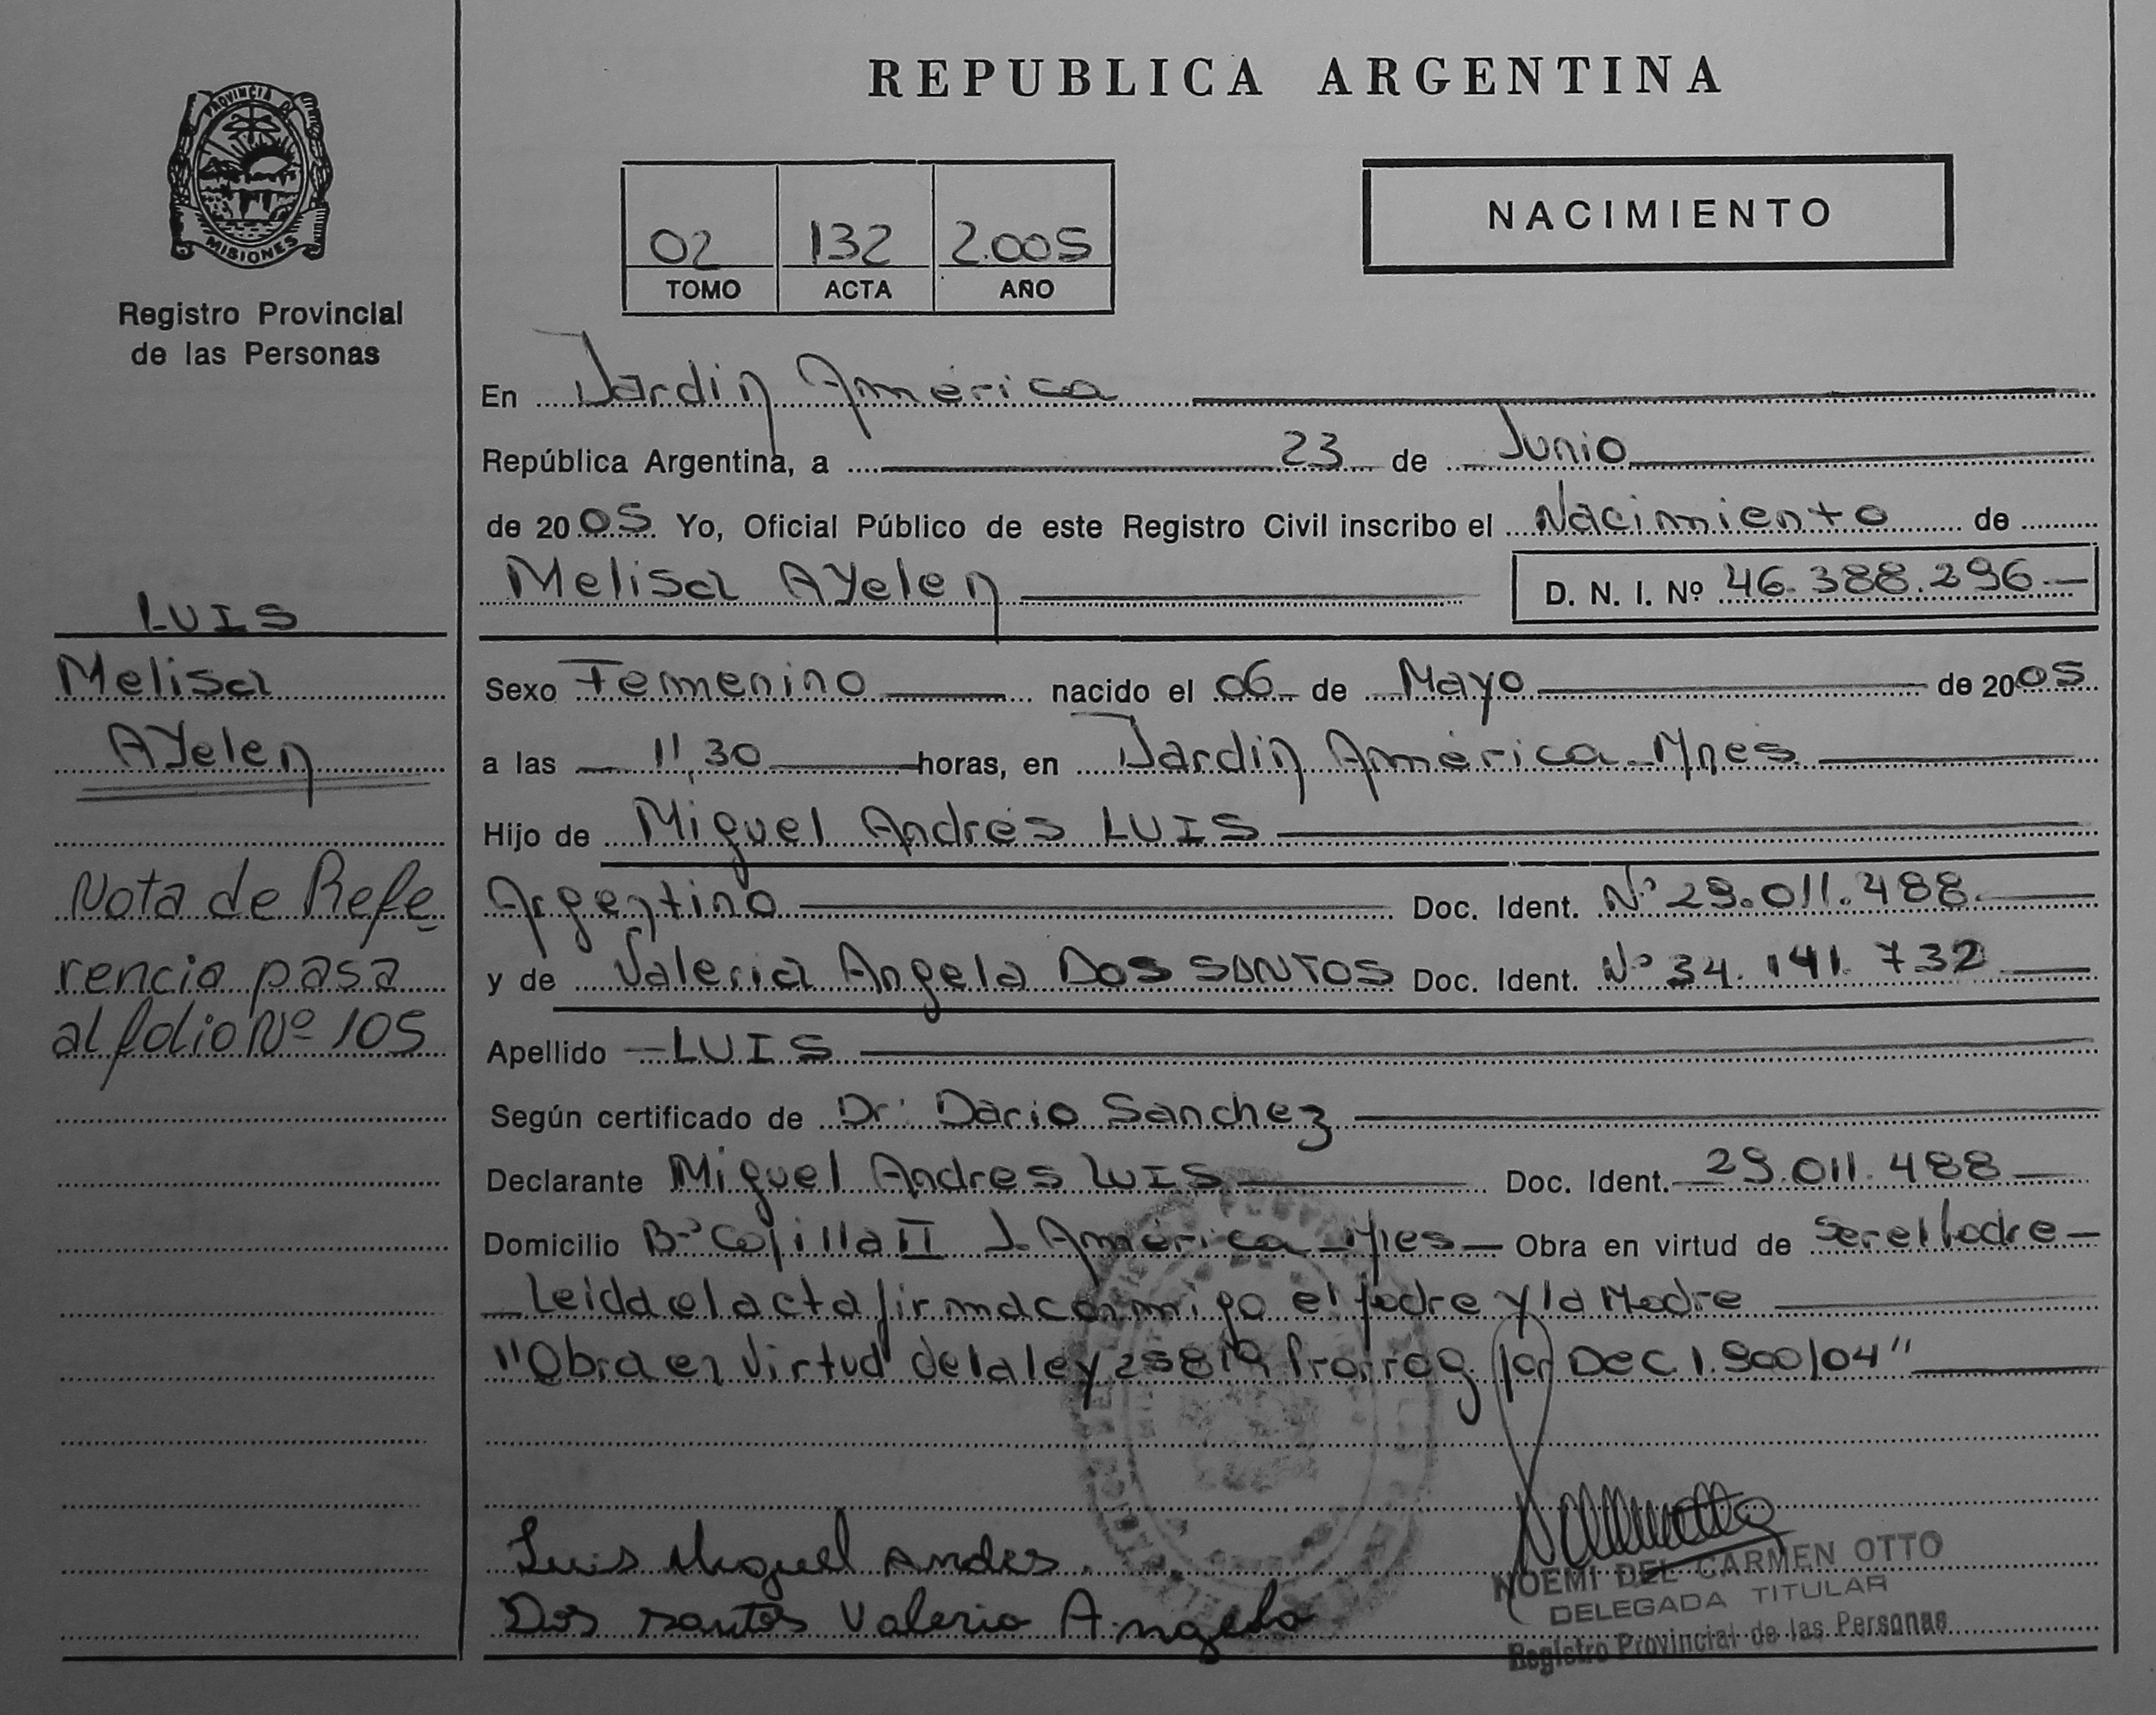 REPUBLICA ARGENTINA
PROVINCIA DE
MISIONES
Registro Provincial
de las Personas
02 132 2.005
TOMO ACTA AÑO
NACIMIENTO
En Jardín América
República Argentina, a 23 de Junio
de 2005 Yo, Oficial Público de este Registro Civil inscribo el Nacimiento de
Melisa AYelen D. N. I. Nº 46.388.296.-
LUIS
Melisa
AYelen
Nota de Refe
rencia pasa
al folio Nº 105
Sexo Femenino nacido el 06 de Mayo de 2005
a las 11,30 horas, en Jardín América-Mnes
Hijo de Miguel Andrés LUIS
Argentino Doc. Ident. Nº 29.011.488.
y de Valeria Angela DOS SANTOS Doc. Ident. Nº 34.141.732
Apellido LUIS
Según certificado de Dr. Dario Sanchez
Declarante Miguel Andres LUIS Doc. Ident. 29.011.488
Domicilio Bº II J. América-Mnes Obra en virtud de Ser el Padre
Leida el acta firma conmigo el padre y la Madre
"Obra en Virtud de la ley 25819 Prorrog. por Dec 1.900/04"
Luis Miguel Andes.
Dos santos Valeria Angela
NOEMI DEL CARMEN OTTO
DELEGADA TITULAR
Registro Provincial de las Personas